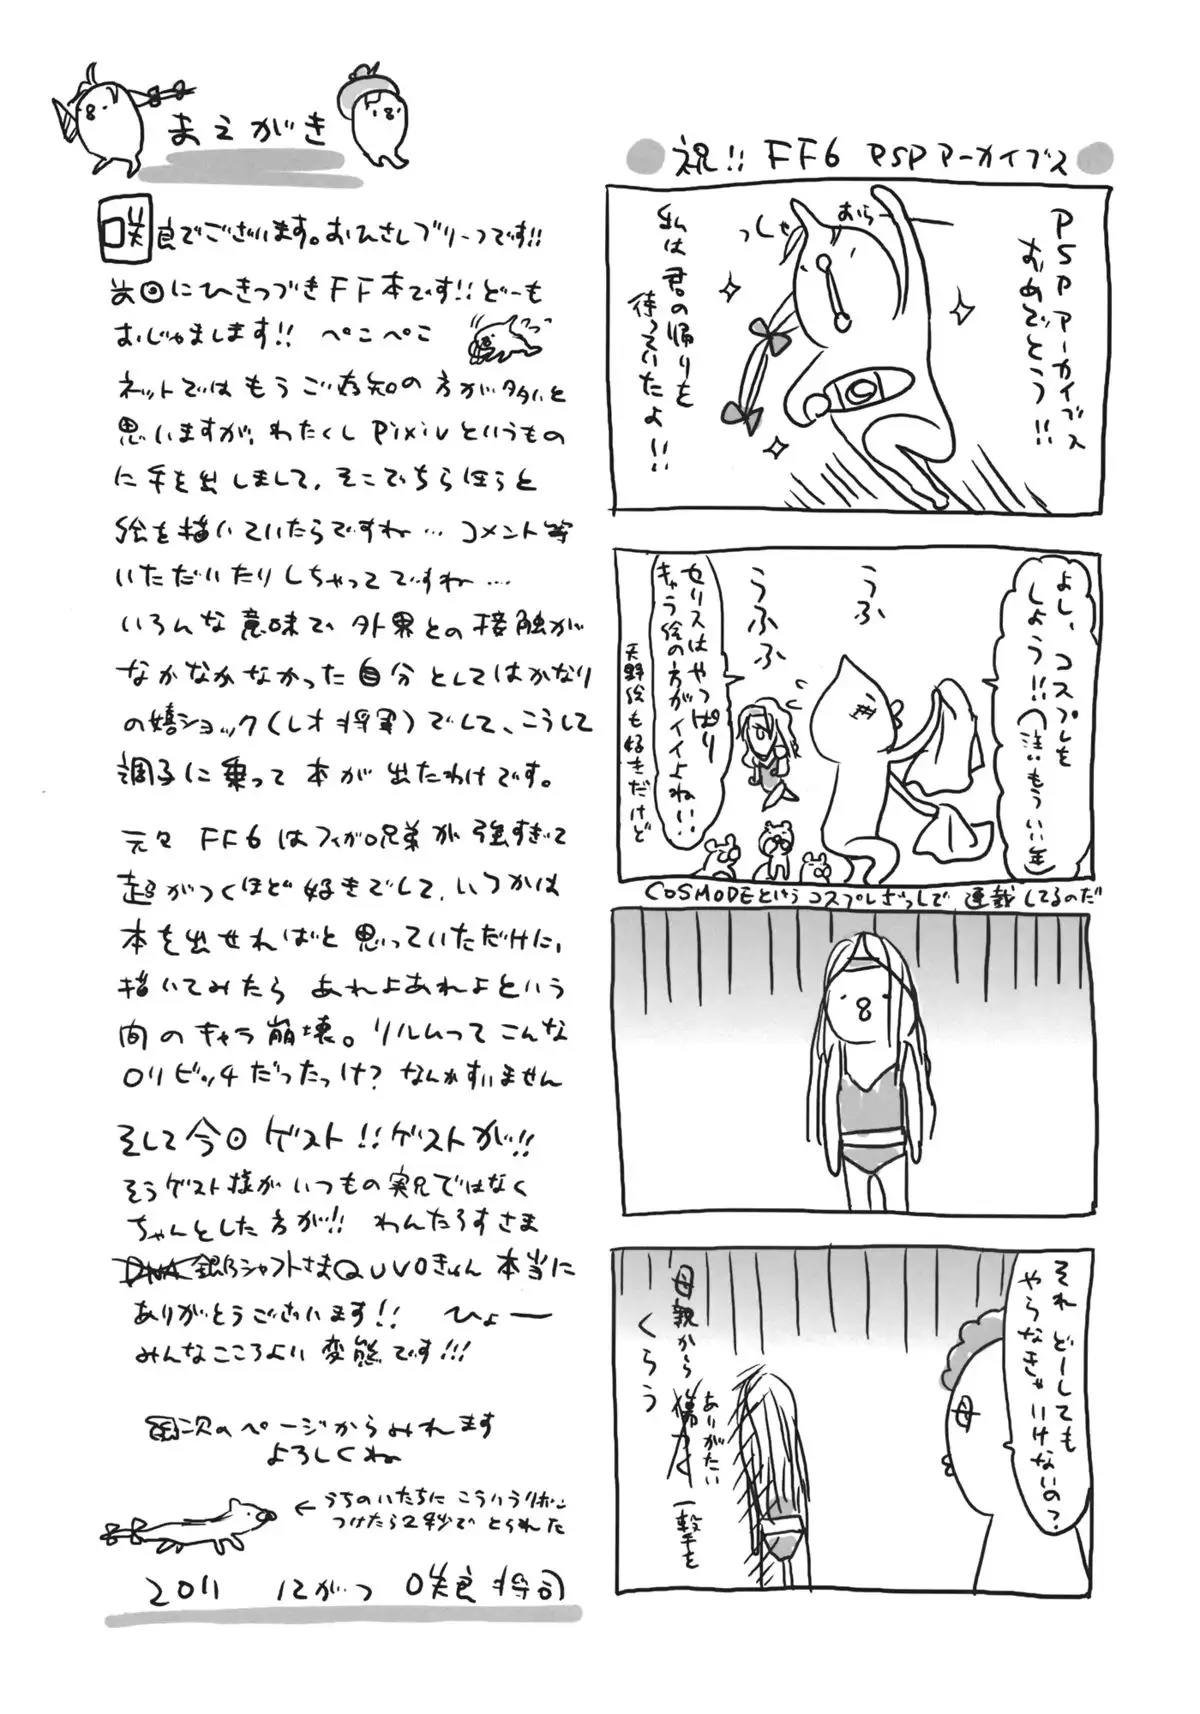 まえがき
咲良でございます。おひさしブリーフです!!
前回にひきつづきFF本です!!どーも
おじゃまします!! ぺこぺこ
ネットではもうご存知の方が多いと
思いますが、わたくしPixivというもの
に手を出しまして、そこでちらほらと
絵を描いていたらですね…コメント等
いただいたりしちゃってですね…
いろんな意味で外界との接触が
なかなかなかった自分としてはかなり
の嬉ショック(レオ将軍)でして、こうして
調子に乗って本が出たわけです。
元々FF6はフィガロ兄弟が強すぎて
超がつくほど好きでして、いつかは
本を出せればと思っていただけに、
描いてみたらあれよあれよという
間のキャラ崩壊。リルムってこんな
ロリビッチだったっけ?なんかすいません
そして今回ゲスト!!ゲストが!!
そうゲスト様がいつもの実兄ではなく
ちゃんとした方が!! わんたろすさま
銀乃シャフトさまQUVOきゅん本当に
ありがとうございます!! ひょー
みんなこころよい変態です!!!
次のページからみれます
よろしくね
←うちのいたちにこういうリボン
つけたら2秒でとられた
2011 12がつ 咲良将司
祝!! FF6 PSPアーカイブス
PSPアーカイブス
おめでとう!!
おら
っしゃ
私は君の帰りを
待っていたよ!!
よし、コスプレを
しよう!!(注:もういい年)
うふ
うふふ
セリスはやっぱり
キャラ絵の方がイイよねい‥
天野絵も好きだけど
COSMODEというコスプレざっしで連載してるのだ
それどーしても
やらなきゃいけないの?
母
母親から
ありがたい
一撃を
くらう